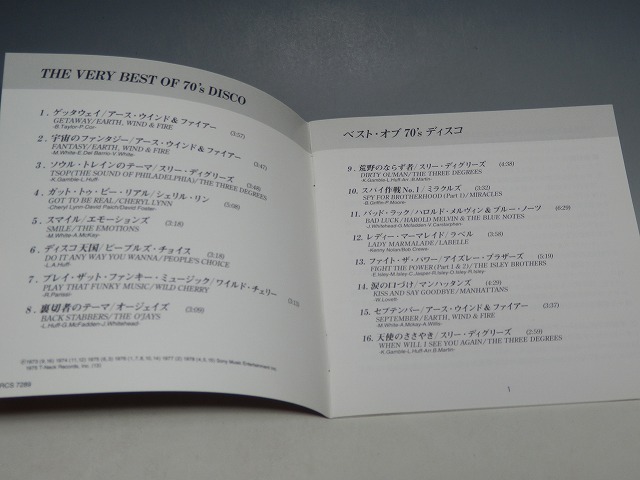 THE VERY BEST OF 70's DISCO
1. ゲッタウェイ/アース・ウインド&ファイアー
GETAWAY/EARTH, WIND & FIRE (3:57)
-B.Taylor-P.Cor-
2. 宇宙のファンタジー/アース・ウインド&ファイアー
FANTASY/EARTH, WIND & FIRE (3:47)
-M.White-E.Del Barrio-V.White-
3. ソウル・トレインのテーマ/スリー・ディグリーズ
TSOP(THE SOUND OF PHILADELPHIA)/THE THREE DEGREES
-K.Gamble-L.Huff-
4. ガット・トゥ・ビー・リアル/シェリル・リン
GOT TO BE REAL/CHERYL LYNN (5:08)
-Cheryl Lynn-David Paich/David Foster-
5. スマイル/エモーションズ (3:18)
SMILE/THE EMOTIONS
-M.White-A.McKay-
6. ディスコ天国/ピープルズ・チョイス (3:18)
DO IT ANY WAY YOU WANNA/PEOPLE'S CHOICE
-L.A.Huff-
7. プレイ・ザット・ファンキー・ミュージック/ワイルド・チェリー
PLAY THAT FUNKY MUSIC/WILD CHERRY
-R.Parissi-
8. 裏切者のテーマ/オージェイズ (3:09)
BACK STABBERS/THE O'JAYS
-L.Huff-G.McFadden-J.Whitehead-
RCS 7289
ベスト・オブ 70's ディスコ
9. 荒野のならず者/スリー・ディグリーズ (4:38)
DIRTY OL'MAN/THE THREE DEGREES
-K.Gamble-L.Huff-Arr.B.Martin-
10. スパイ作戦 No.1/ミラクルズ (3:32)
SPY FOR BROTHERHOOD (Part 1)/MIRACLES
-B.Griffin-P.Moore-
11. バッド・ラック/ハロルド・メルヴィン&ブルー・ノーツ (6:29)
BAD LUCK/HAROLD MELVIN & THE BLUE NOTES
-J.Whitehead-G.McFadden-V.Carstarphen-
12. レディー・マーマレイド/ラベル (3:58)
LADY MARMALADE/LABELLE
-Kenny Nolan/Bob Crewe-
13. ファイト・ザ・パワー/アイズレー・ブラザーズ (5:19)
FIGHT THE POWER (Part 1 & 2)/THE ISLEY BROTHERS
-E.Isley-M.Isley-C.Jasper-R.Isley-O.Isley-R.Isley-
14. 涙の口づけ/マンハッタンズ (4:29)
KISS AND SAY GOODBYE/MANHATTANS
-W.Lovett-
15. セプテンバー/アース・ウインド&ファイアー (3:37)
SEPTEMBER/EARTH, WIND & FIRE
-M.White-A.McKay-A.Willis-
16. 天使のささやき/スリー・ディグリーズ (2:59)
WHEN WILL I SEE YOU AGAIN/THE THREE DEGREES
-K.Gamble-L.Huff-Arr.B.Martin-